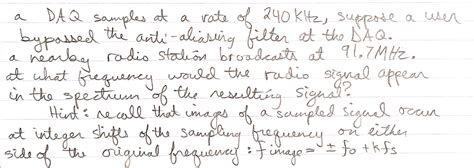 a DAQ samples at a rate of 240 KHz, suppose a user
bypassed the anti-aliasing filter at the DAQ.
a nearby radio station broadcasts at 91.7 MHz.
at what frequency would the radio signal appear
in the spectrum of the resulting signal?
Hint: recall that images of a sampled signal occur
at integer shifts of the sampling frequency on either
side of the original frequency: fimage = ± fo + k·fs